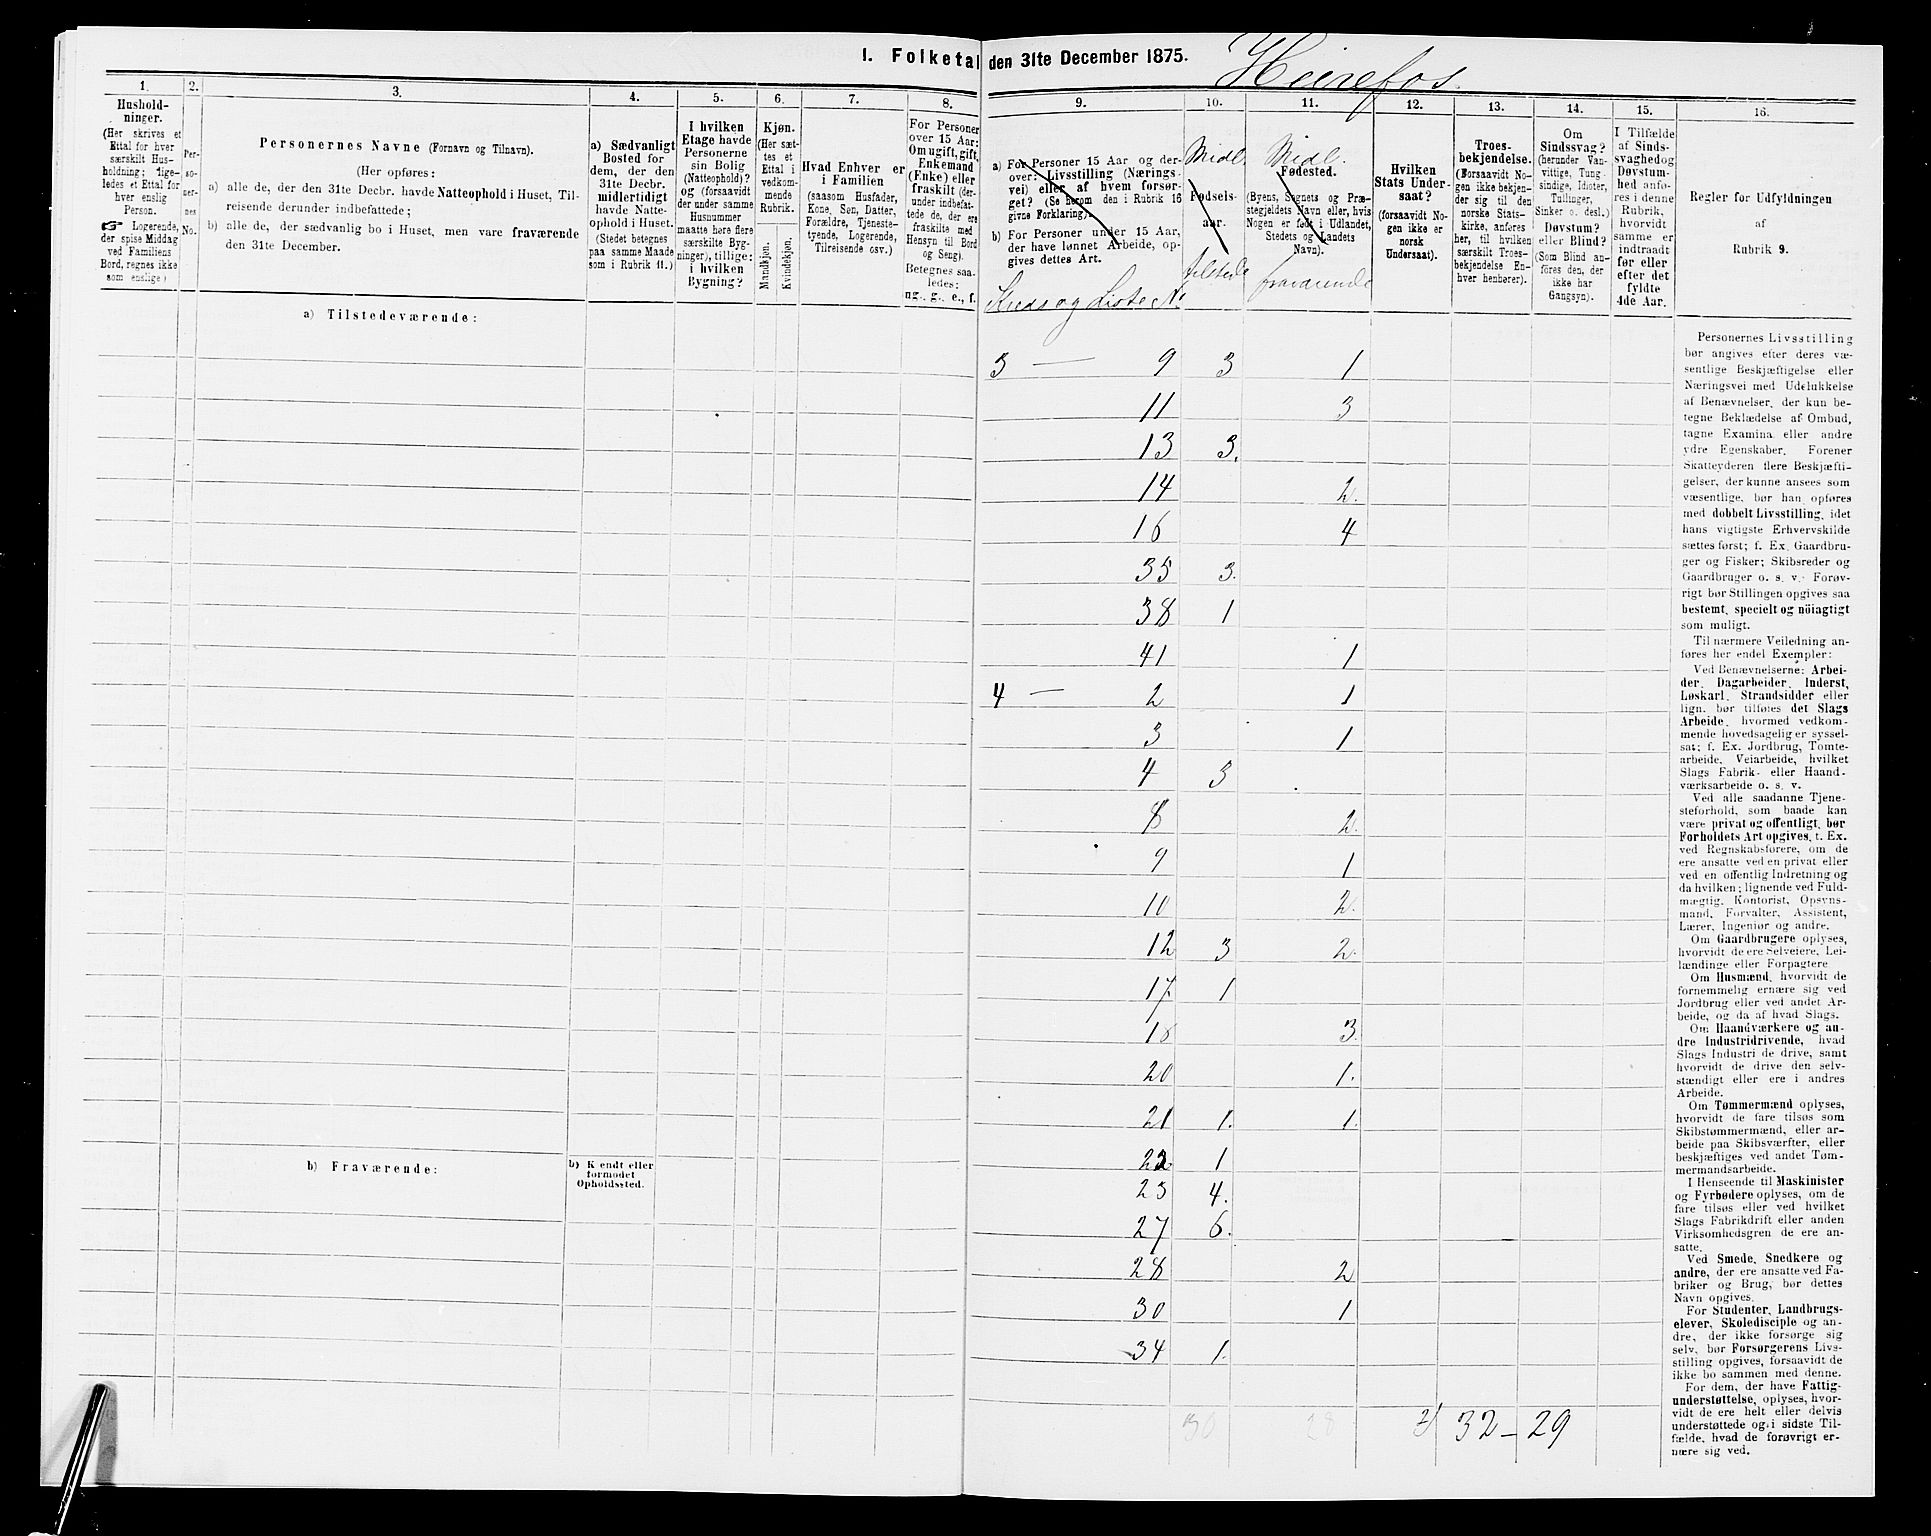 I. Folketal den 31te December 1875.
Heirefos.
1.
Hushold-
ninger.
(Her skrives et
Ettal for hver
særskilt Hus-
holdning; lige-
ledes et Ettal for
hver enslig
Person.
☞ Logerende,
der spise Middag
ved Familiens
Bord, regnes ikke
som enslige.)
2.
Per-
so-
ner-
nes
No.
3.
Personernes Navne (Fornavn og Tilnavn).
(Her opføres:
a) alle de, der den 31te Decbr. havde Natteophold i Huset, Til-
reisende derunder indbefattede;
b) alle de, der sædvanlig bo i Huset, men vare fraværende
den 31te December.
4.
a) Sædvanligt
Bosted for
dem, der den
31te Decbr.
midlertidigt
havde Natte-
ophold i Huset.
(Stedet betegnes
paa samme Maade
som i Rubrik 11.)
5.
I hvilken
Etage havde
Personerne
sin Bolig
(Natteophold)?
og (forsaavidt
der under samme
Husnummer
maatte høre flere
særskilte Byg-
ninger), tillige:
i hvilken
Bygning?
6.
Kjøn.
(Her sæt-
tes et
Ettal i
vedkom-
mende
Rubrik.
Mandkjøn.
Kvindekjøn.
7.
Hvad Enhver er
i Familien
(saasom Husfader,
Kone, Søn, Datter,
Forældre, Tjeneste-
tyende, Logerende,
Tilreisende osv.)
8.
For Personer
over 15 Aar:
Om ugift, gift,
Enkemand
(Enke) eller
fraskilt (der-
under indbefat-
tede de, der ere
fraskilte med
Hensyn til Bord
og Seng).
Betegnes saa-
ledes:
ug., g., e., f.
9.
a) For Personer 15 Aar og der-
over: Livsstilling (Nærings-
vei) eller af hvem forsør-
get? (Se herom den i Rubrik 16
givne Forklaring).
b) For Personer under 15 Aar,
der have lønnet Arbeide, op-
gives dettes Art.
Kreds og Liste No
10.
Midl.
Fødsels-
aar.
tilstede
11.
Midl.
Fødested.
(Byens, Sognets og Præ-
stegjeldets Navn eller, hvis
Nogen er født i Udlandet,
Stedets og Landets
Navn).
fraværende
12.
Hvilken
Stats Under-
saat?
(forsaavidt No-
gen ikke er
norsk
Undersaat).
13.
Troes-
bekjendelse.
(Forsaavidt No-
gen ikke bekjen-
der sig til den
norske Stats-
kirke, anføres
her, til hvilken
særskilt Troes-
bekjendelse En-
hver henhører).
14.
Om
Sindssvag?
(herunder Van-
vittige, Tung-
sindige, Idioter,
Tullinger,
Sinker o. desl.)
Døvstum?
eller Blind?
(Som Blind an-
føres den, der
ikke har
Gangsyn).
15.
I Tilfælde
af Sinds-
svaghed og
Døvstum-
hed anfø-
res i denne
Rubrik,
hvorvidt
samme er
indtraadt
før eller
efter det
fyldte
4de Aar.
16.
Regler for Udfyldningen
af
Rubrik 9.
a) Tilstedeværende:
3 — 9 3 1
11 3
13 3.
14 2.
16 4
35 3.
38 1
41 1
4 — 2 1
3 1
4 3
8 2.
9 1
10 2.
12 3 2.
17. 1
18 3.
20 1.
21 1. 1.
22 1
b) Fraværende:
b) Kjendt eller
formodet
Opholdssted.
23 4.
27 6.
28 2
30 1
34 1.
30 28 32 – 29
Personernes Livsstilling
bør angives efter deres væ-
sentlige Beskjæftigelse eller
Næringsvei med Udelukkelse
af Benævnelser, der kun be-
tegne Beklædelse af Ombud,
tagne Examina eller andre
ydre Egenskaber. Forener
Skatteyderen flere Beskjæfti-
gelser, der kunne ansees som
væsentlige, bør han opføres
med dobbelt Livsstilling, idet
hans vigtigste Erhvervskilde
sættes først; f. Ex. Gaardbru-
ger og Fisker; Skibsreder og
Gaardbruger o. s. v. Forøv-
rigt bør Stillingen opgives saa
bestemt, specielt og nöiagtigt
som muligt.
Til nærmere Veiledning an-
føres her endel Exempler:
Ved Benævnelserne: Arbei-
der, Dagarbeider, Inderst,
Løskarl, Strandsidder eller
lign. bør tilføies det Slags
Arbeide, hvormed vedkom-
mende hovedsagelig er syssel-
sat; f. Ex. Jordbrug, Tomte-
arbeide, Veiarbeide, hvilket
Slags Fabrik- eller Haand-
værksarbeide o. s. v.
Ved alle saadanne Tjene-
steforhold, som baade kan
være privat og offentligt, bør
Forholdets Art opgives, t. Ex.
ved Regnskabsførere, om de
ere ansatte ved en privat eller
ved en offentlig Indretning og
da hvilken; lignende ved Fuld-
mægtig, Kontorist, Opsyns-
mand, Forvalter, Assistent,
Lærer, Ingeniør og andre.
Om Gaardbrugere oplyses,
hvorvidt de ere Selveiere, Lei-
lændinge eller Forpagtere
Om Husmænd, hvorvidt de
fornemmelig ernære sig ved
Jordbrug eller ved andet Ar-
beide, og da af hvad Slags.
Om Haandværkere og an-
dre Industridrivende, hvad
Slags Industri de drive, samt
hvorvidt de drive den selv-
stændigt eller ere i andres
Arbeide.
Om Tømmermænd oplyses,
hvorvidt de fare tilsøs som
Skibstømmermænd, eller ar-
beide paa Skibsværfter, eller
beskjæftiges ved andet Tøm-
mermandsarbeide.
I Henseende til Maskinister
og Fyrbødere oplyses, om de
fare tilsøs eller ved hvilket
Slags Fabrikdrift eller anden
Virksomhedsgren de ere an-
satte.
Ved Smede, Snedkere og
andre, der ere ansatte ved Fa-
briker og Brug, bør dettes
Navn opgives.
For Studenter, Landbrugs-
elever, Skoledisciple og an-
dre, der ikke forsørge sig
selv, bør Forsørgerens Livs-
stilling opgives, forsaavidt de
ikke bo sammen med denne.
For dem, der have Fattig-
understøttelse, oplyses, hvor-
vidt de ere helt eller delvis
understøttede og i sidste Til-
fælde, hvad de forøvrigt er-
nære sig ved.